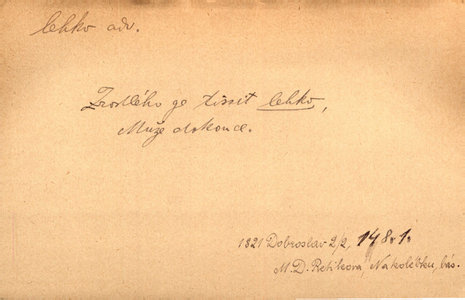 lehko adv.
Zrostlého ge tissit lehko,
Muže dokonce.
1821 Dobroslav 2/2, 148.1.
M. D. Retikova, Na kolébku, bás.